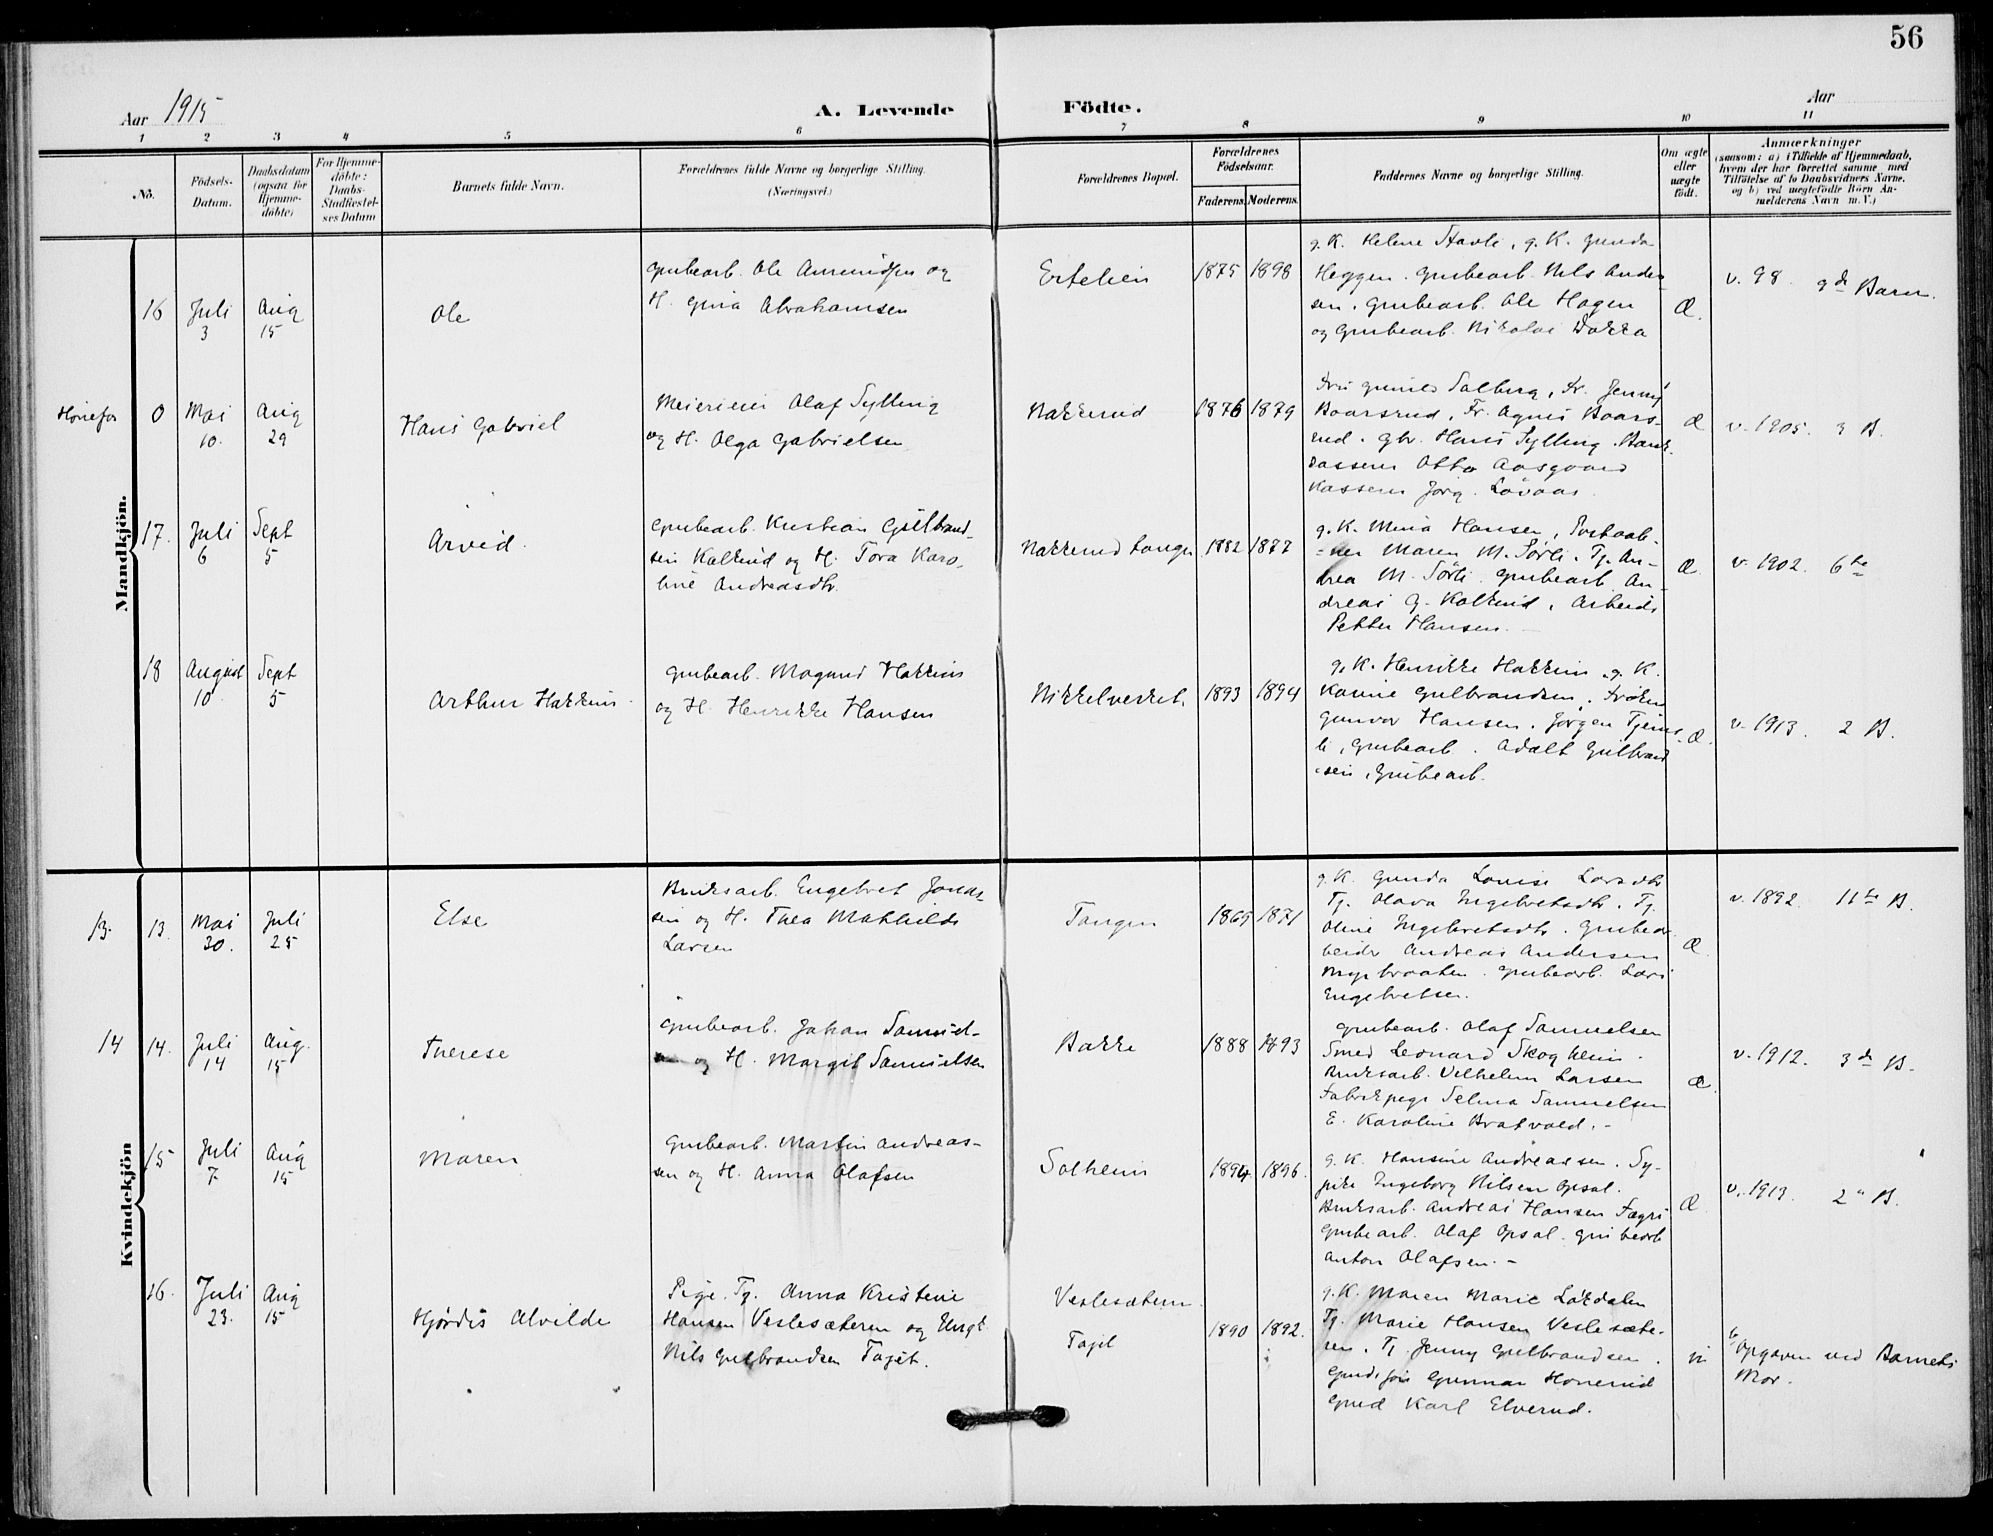 56
Aar 1915
A. Levende
Födte.
Aar
1 2 3 4 5 6 7 8 9 10 11
No.
Födsels-
Datum.
Daabsdatum
(ogsaa for
Hjemme-
döbte)
For Hjemme-
döbte:
Daabs-
Stadfæstel-
ses Datum
Barnets fulde Navn.
Forældrenes fulde Navne og borgerlige Stilling.
(Næringsvei.)
Forældrenes Bopæl.
Forældrenes
Födselsaar.
Faderens. Moderens.
Faddernes Navne og borgerlige Stilling.
Om ægte
eller
uægte
födt.
Anmærkninger
(saasom: a) i Tilfælde af Hjemmedaab,
hvem der har forrettet samme med
Tilföielse af to Daabsvidners Navne.
og b) ved uægtefödte Börn An-
melderens Navn m. V.)
Mandkjön.
16
Juli
3
Aug
15
Ole
Grubearb. Ole Amundsen og
H. Gina Abrahamsen
Ertelien
1875 1898
g. K. Helene Stavli, g. K. Gunda
Heggen. Grubearb. Nils Ander
sen. Grubearb. Ole Hagen
og Grubearb. Nikolai Dokka
Æ.
v. 98 9de Barn.
Hönefos
0
Mai
10.
Aug
29
Hans Gabriel
Meierieier Olaf Sylling
og H. Olga Gabrielsen
Nakkerud
1876 1879
Fru Solberg, Fr. Jenny
Baarsrud, Fr. Agnes Baars-
rud. Gbr. Hans Sylling. Bank
kasserer Otto Aasgaard
Kasserer Jörg. Lövaas.
Æ
v. 1905. 3 B.
17.
Juli
6
Sept
5
Arvid.
Grubearb. Kristian Gulbrand-
sen Kolkind og H. Tora Karo-
line Andreasdtr.
Nakkerud tangen
1882 1877
g. K. Mina Hansen, Postaab-
ner Maren M. Sörli. Tj. An-
drea M. Sörli. Grubearb An-
dreas G. Kolkind, Arbeids
Petter Hansen.
Æ
v. 1902. 6te
18
August
10
Sept
5
Arthur Hakkin
Grubearb. Magnus Hakkin
og H. Henrikke Hansen
Nikkelverket.
1893 1894
g. K. Henrikke Hakkin, g. K.
Karine Gulbrandsen. Fröken
Gunvor Hansen. Jörgen Tjerns-
li, Grubearb. Adolf Gulbrand
sen, Grubearb.
Æ.
v. 1913. 2 B.
Kvindekjön
13. 13.
Mai
30.
Juli
25
Else
Bruksarb. Engebret Jonas-
sen og H. Thea Mathilde
Larsen
Tangen
1869 1871
g. K. Gunda Lovise Larsdtr
Tj. Olava Ingebretsdtr. Tj.
Oline Ingebretsdtr. Grubear
beider Andreas Andersen
Myrbraaten. Grubearb. Lars
Engebretsen.
Æ
v. 1892. 11te B.
14 14.
Juli
14
Aug.
15
Therese
Grubearb. Johan Samuel-
sen og H. Margit Samuelsen
Bakke
1888 1893
Grubearb. Olaf Samuelsen
Smed Leonard Skogheim.
Bruksarb. Vilhelm Larsen
Fabrikpige Selma Samuelsen
E. Karoline Bratvold.
Æ
v. 1912. 3de B.
15
Juli
7.
Aug
15
Maren
Grubearb. Martin Andreas-
sen og H. Anna Olafsen
Solheim
1894. 1896.
g. K. Hansine Andreassen. Sy-
pike Ingeborg Nilsen Opsal.
Bruksarb. Andreas Hansen
Grubearb. Olaf Opsal. Grubearb
Anton Olafsen.
Æ
v. 1913. 2" B.
16.
Juli
23.
Aug
15
Hjördis Alvilde
Pige. Tj. Anna Kristine
Hansen Veslesæteren og Ungk
Nils Gulbrandsen Fagit.
Veslesætern.
Fagit
1890 1892.
g. K. Maren Marie Lökdalen
Tj. Marie Hansen Veslesæte-
ren. Tj. Jenny Gulbrandsen.
Gunnar Honerud
Karl Elverud.
Opgaven ved Barnets
Mor.